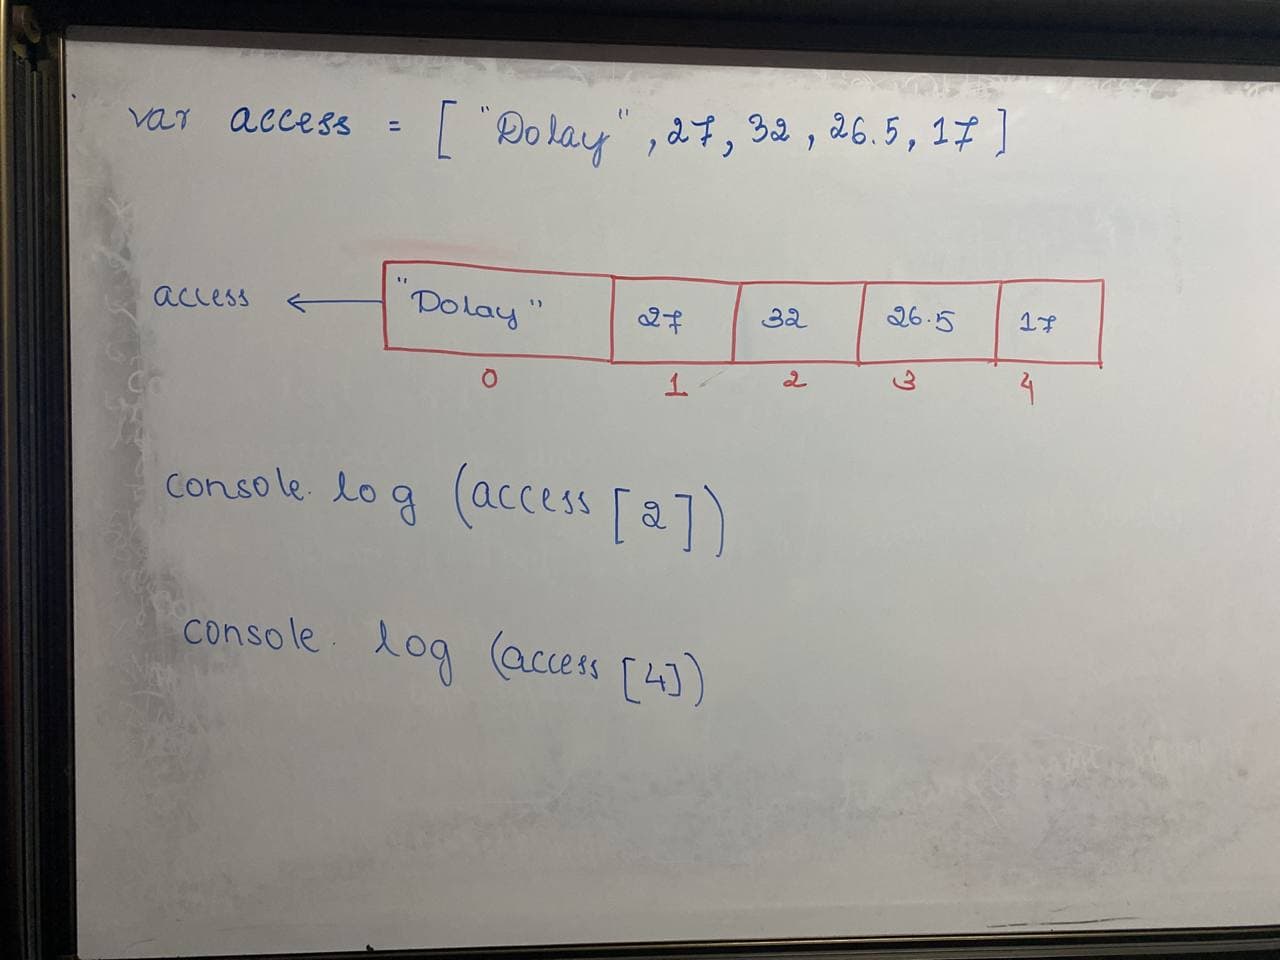 var access = [ "Dolay", 27, 32, 26.5, 17 ]
access ← "Dolay" 27 32 26.5 17
0 1 2 3 4
console.log (access [2])
console.log (access [4])